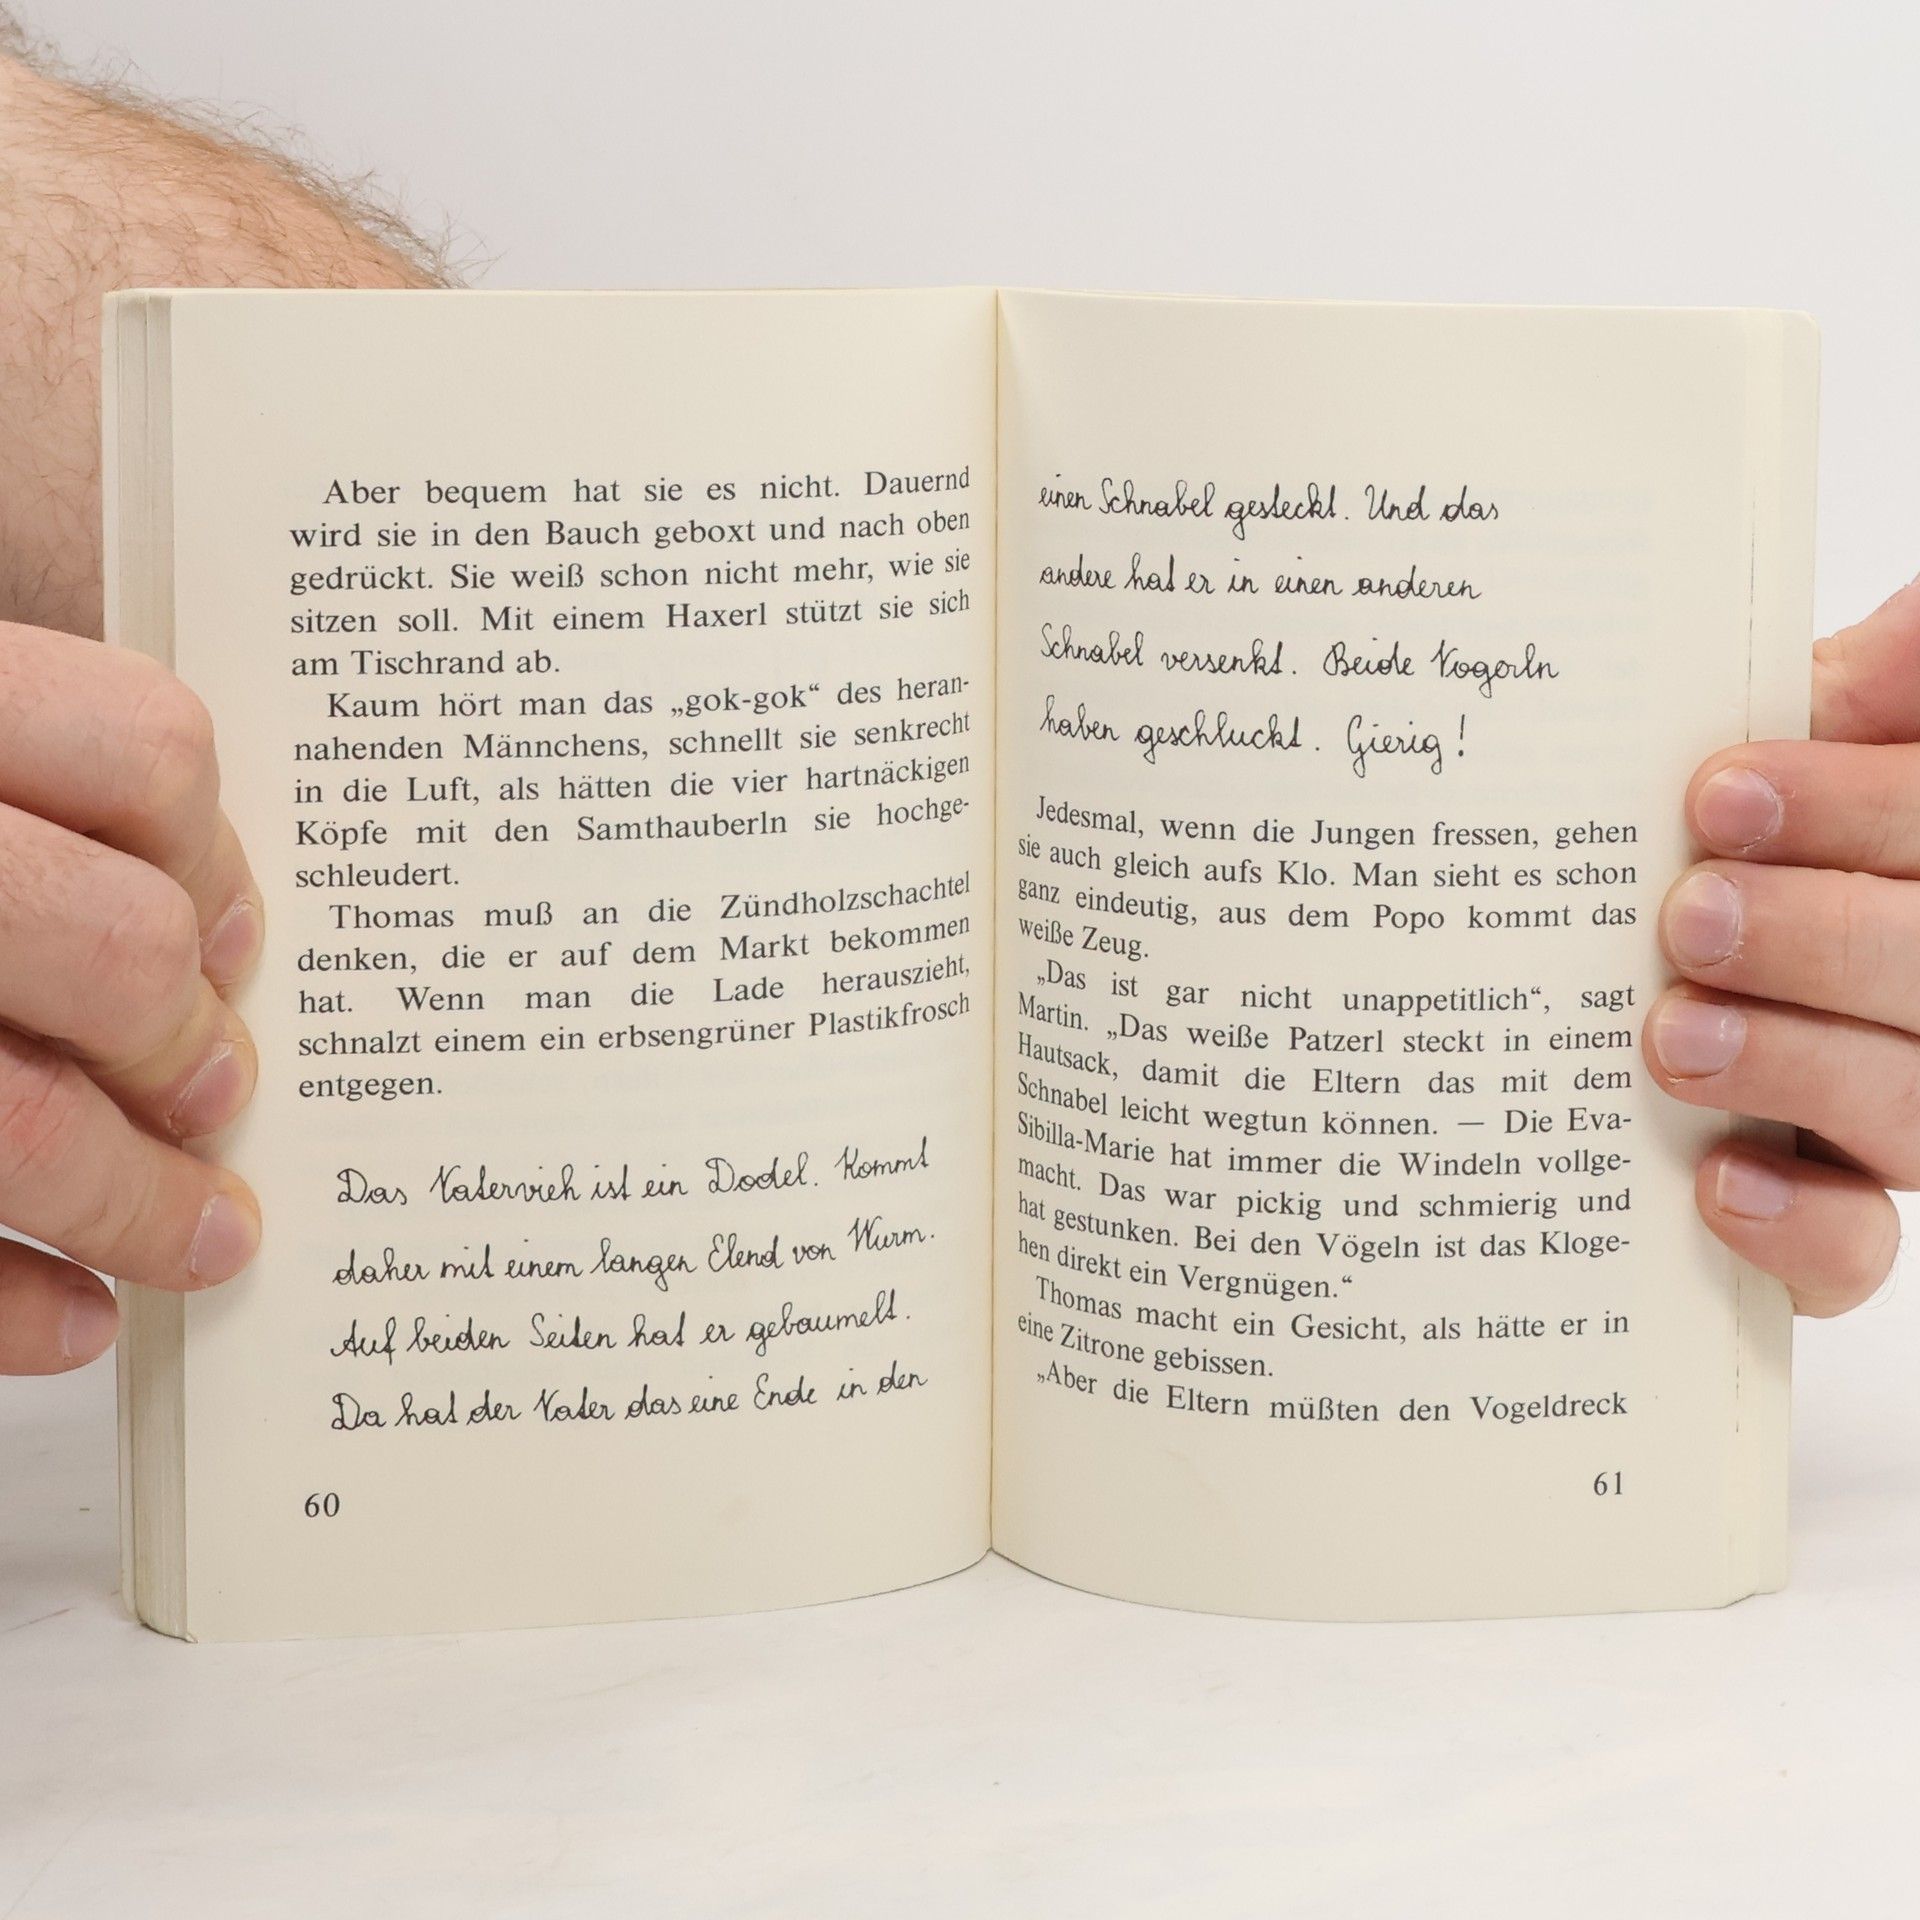 Aber bequem hat sie es nicht. Dauernd
wird sie in den Bauch geboxt und nach oben
gedrückt. Sie weiß schon nicht mehr, wie sie
sitzen soll. Mit einem Haxerl stützt sie sich
am Tischrand ab.
Kaum hört man das „gok-gok“ des heran-
nahenden Männchens, schnellt sie senkrecht
in die Luft, als hätten die vier hartnäckigen
Köpfe mit den Samthauberln sie hochge-
schleudert.
Thomas muß an die Zündholzschachtel
denken, die er auf dem Markt bekommen
hat. Wenn man die Lade herauszieht,
schnalzt einem ein erbsengrüner Plastikfrosch
entgegen.
Das Vatervieh ist ein Dodel. Kommt
daher mit einem langen Elend von Wurm.
Auf beiden Seiten hat er gebaumelt.
Da hat der Vater das eine Ende in den
60
einen Schnabel gesteckt. Und das
andere hat er in einen anderen
Schnabel versenkt. Beide Vogerln
haben geschluckt. Gierig!
Jedesmal, wenn die Jungen fressen, gehen
sie auch gleich aufs Klo. Man sieht es schon
ganz eindeutig, aus dem Popo kommt das
weiße Zeug.
„Das ist gar nicht unappetitlich“, sagt
Martin. „Das weiße Patzerl steckt in einem
Hautsack, damit die Eltern das mit dem
Schnabel leicht wegtun können. — Die Eva-
Sibilla-Marie hat immer die Windeln vollge-
macht. Das war pickig und schmierig und
hat gestunken. Bei den Vögeln ist das Kloge-
hen direkt ein Vergnügen.“
Thomas macht ein Gesicht, als hätte er in
eine Zitrone gebissen.
„Aber die Eltern müßten den Vogeldreck
61